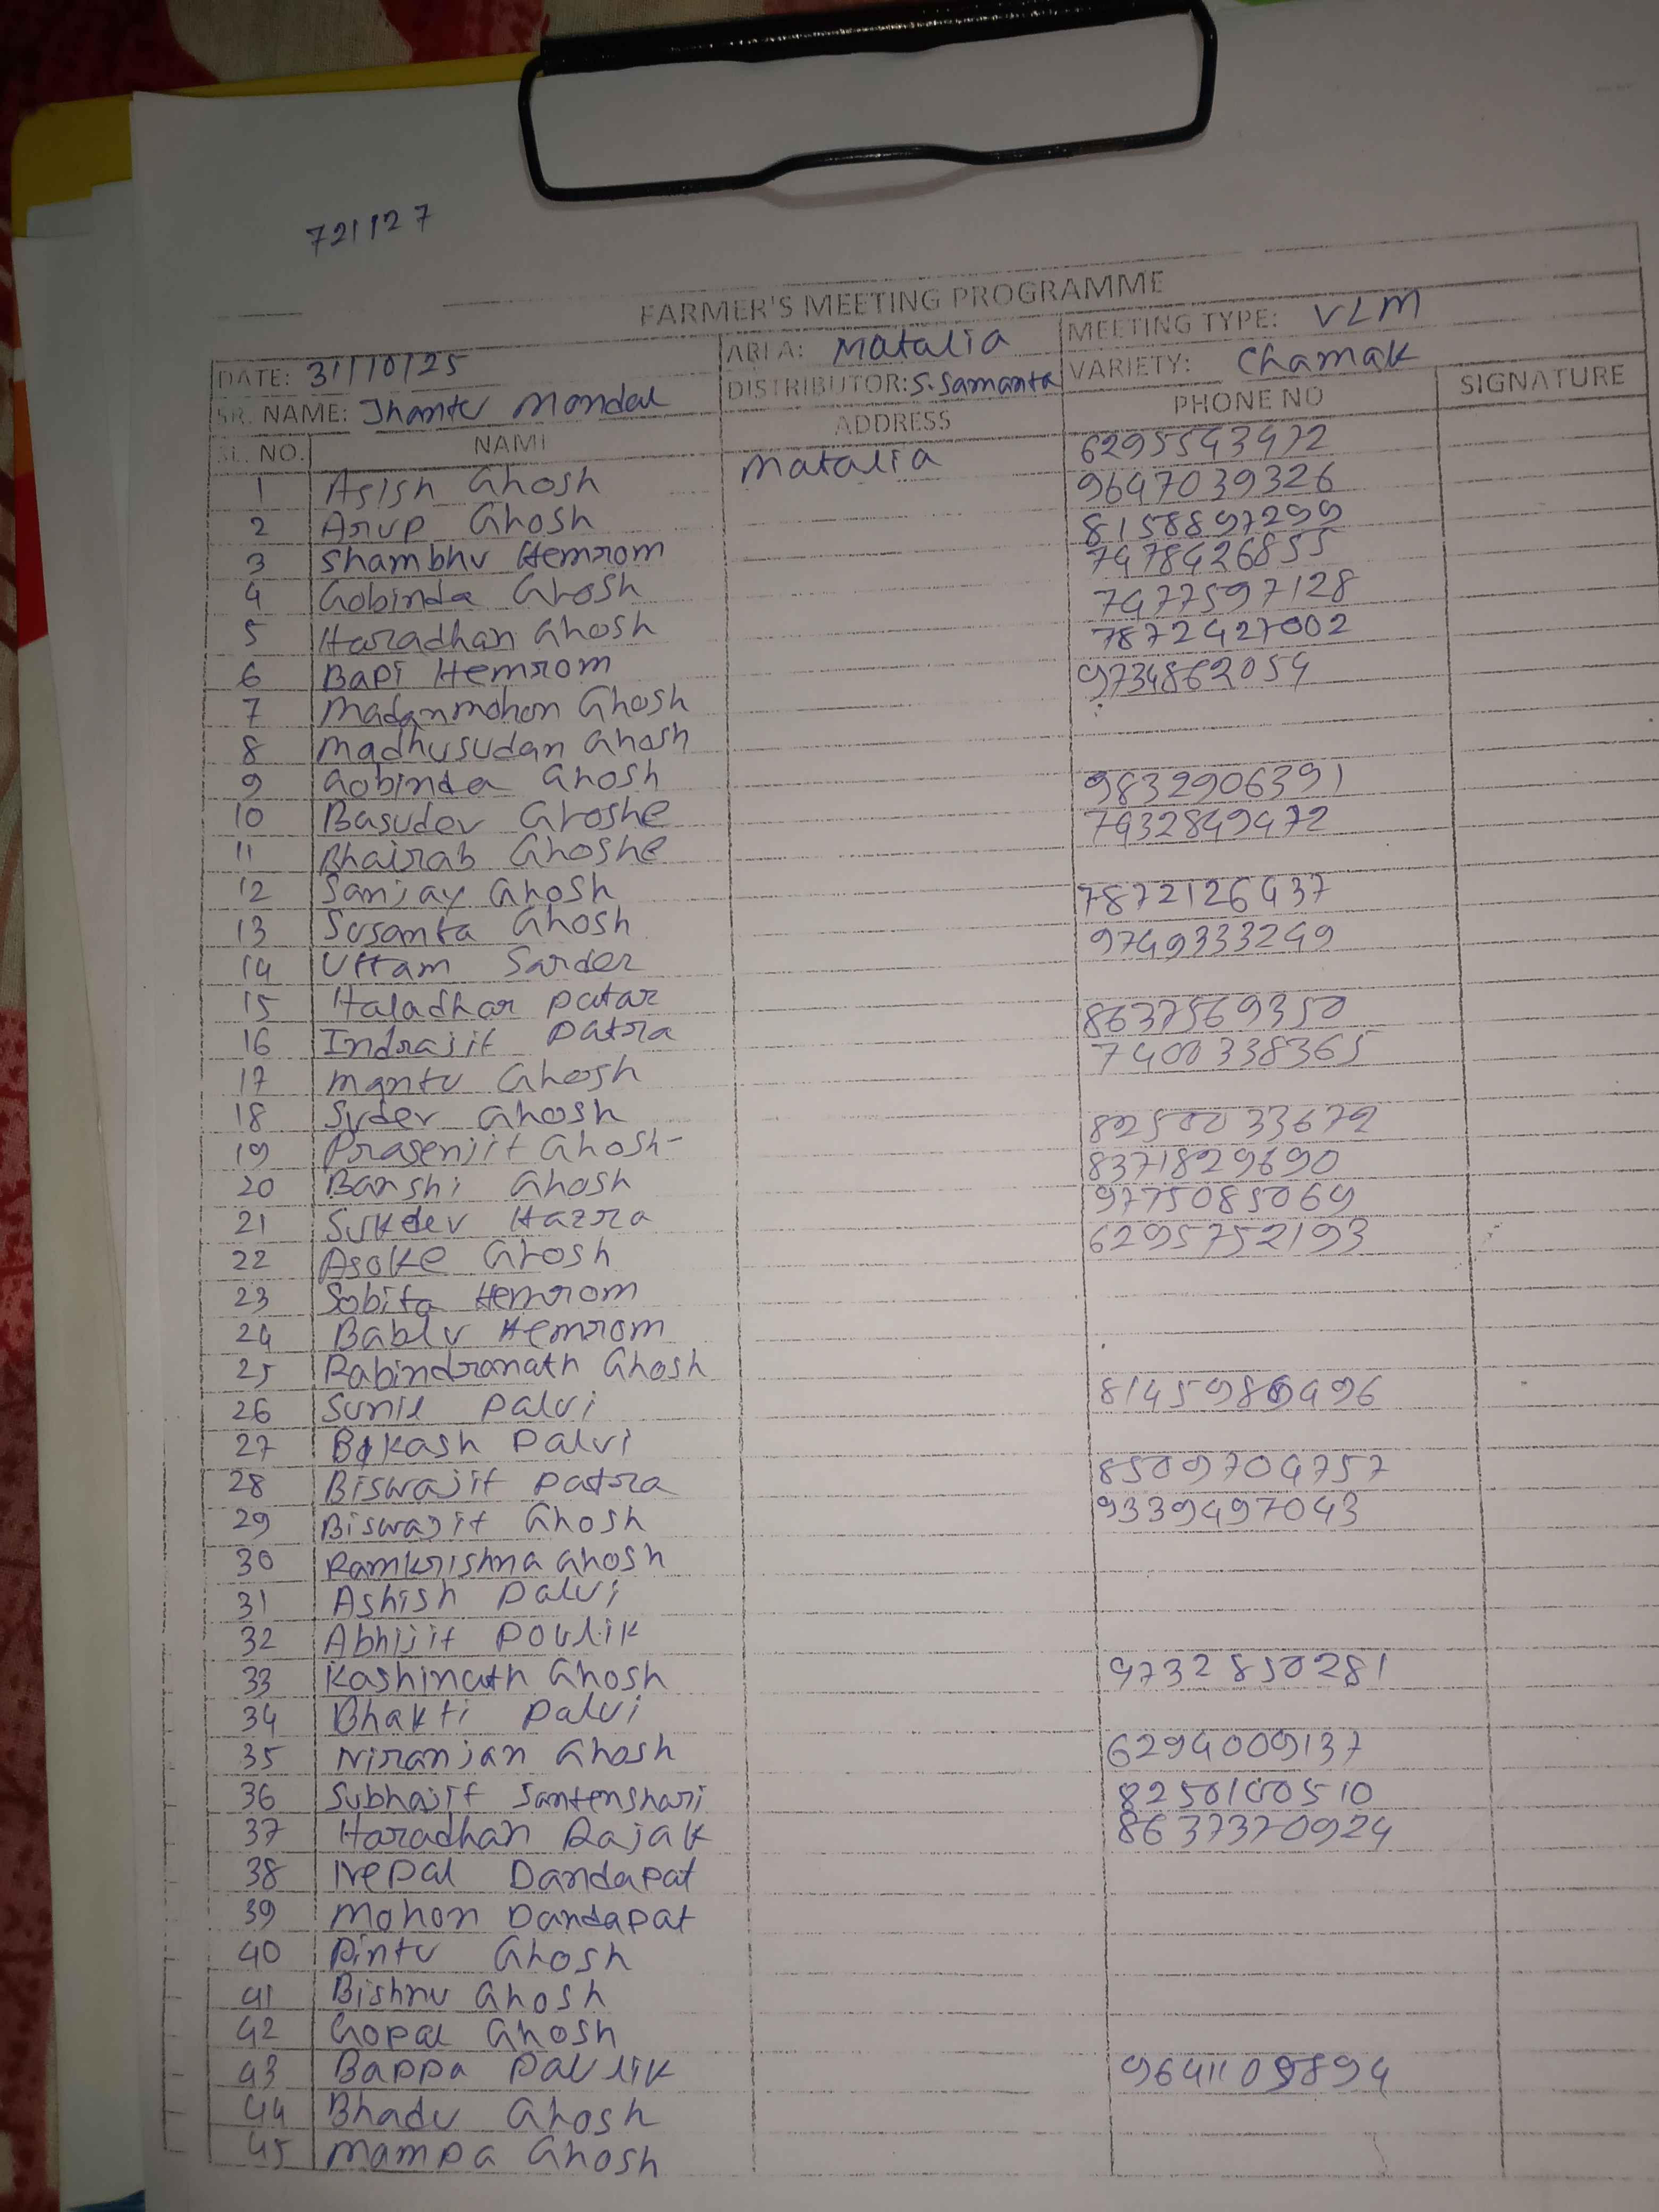 721127
FARMER'S MEETING PROGRAMME
DATE: 31/10/25 AREA: Matalia MEETING TYPE: VLM
SR. NAME: Jhantu Mondal DISTRIBUTOR: S. Samanta VARIETY: Chamak
SL. NO. NAME ADDRESS PHONE NO SIGNATURE
1 Asish Ghosh Matalia 6295543472
2 Arup Ghosh 9647039326
3 Shambhu Hemrom 8158897299
4 Gobinda Ghosh 7478426855
5 Haradhan Ghosh 7477597128
6 Bapi Hemrom 7872427002
7 Madanmohon Ghosh 9734862054
8 Madhusudan Ghosh
9 Gobinda Ghosh
10 Basudev Ghoshe 9832906391
11 Bhairab Ghoshe 7432849472
12 Sanjay Ghosh
13 Susanta Ghosh 7872126437
14 Uttam Sarder 9749333249
15 Haladhar Patar
16 Indrajit Patra 8637569350
17 Mantu Ghosh 7400338365
18 Sudev Ghosh
19 Prasenjit Ghosh 8250033672
20 Banshi Ghosh 8371829690
21 Sukdev Hazra 9775085069
22 Asoke Ghosh 6295752193
23 Sobita Hemrom
24 Bablu Hemrom
25 Rabindranath Ghosh
26 Sunil Palui
27 Bikash Palui
28 Biswajit Patra 8509704757
29 Biswajit Ghosh 9339497043
30 Ramkrishna Ghosh
31 Ashish Palui
32 Abhijit Poulik
33 Kashinath Ghosh 9732850281
34 Bhakti Palui
35 Niranjan Ghosh 6294009137
36 Subhajit 8250100510
37 Haradhan Rajak 8637370924
38 Nepal Dandapat
39 Mohon Dandapat
40 Pintu Ghosh
41 Bishnu Ghosh
42 Gopal Ghosh
43 Bappa Paulik 9641109894
44 Bhadu Ghosh
45 Mampa Ghosh